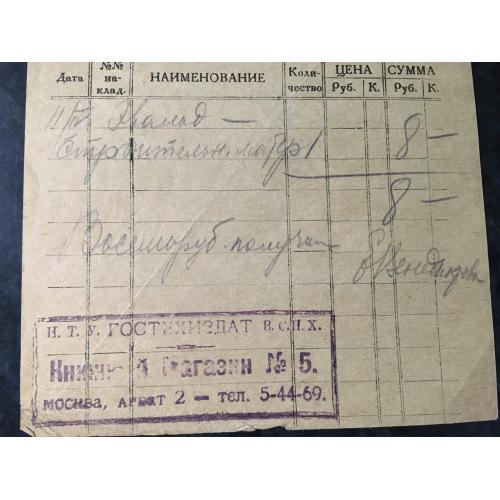 Дата №№ на-клад. НАИМЕНОВАНИЕ Коли-чество ЦЕНА Руб. К. СУММА Руб. К.
Хвалод — 8 —
Строительн. матер 1
8 —
Восемь руб. получил
Н. Т. У. ГОСТЕХИЗДАТ В.С.Н.Х.
Книжный Магазин № 5.
МОСКВА, АРБАТ 2 — ТЕЛ. 5-44-69.